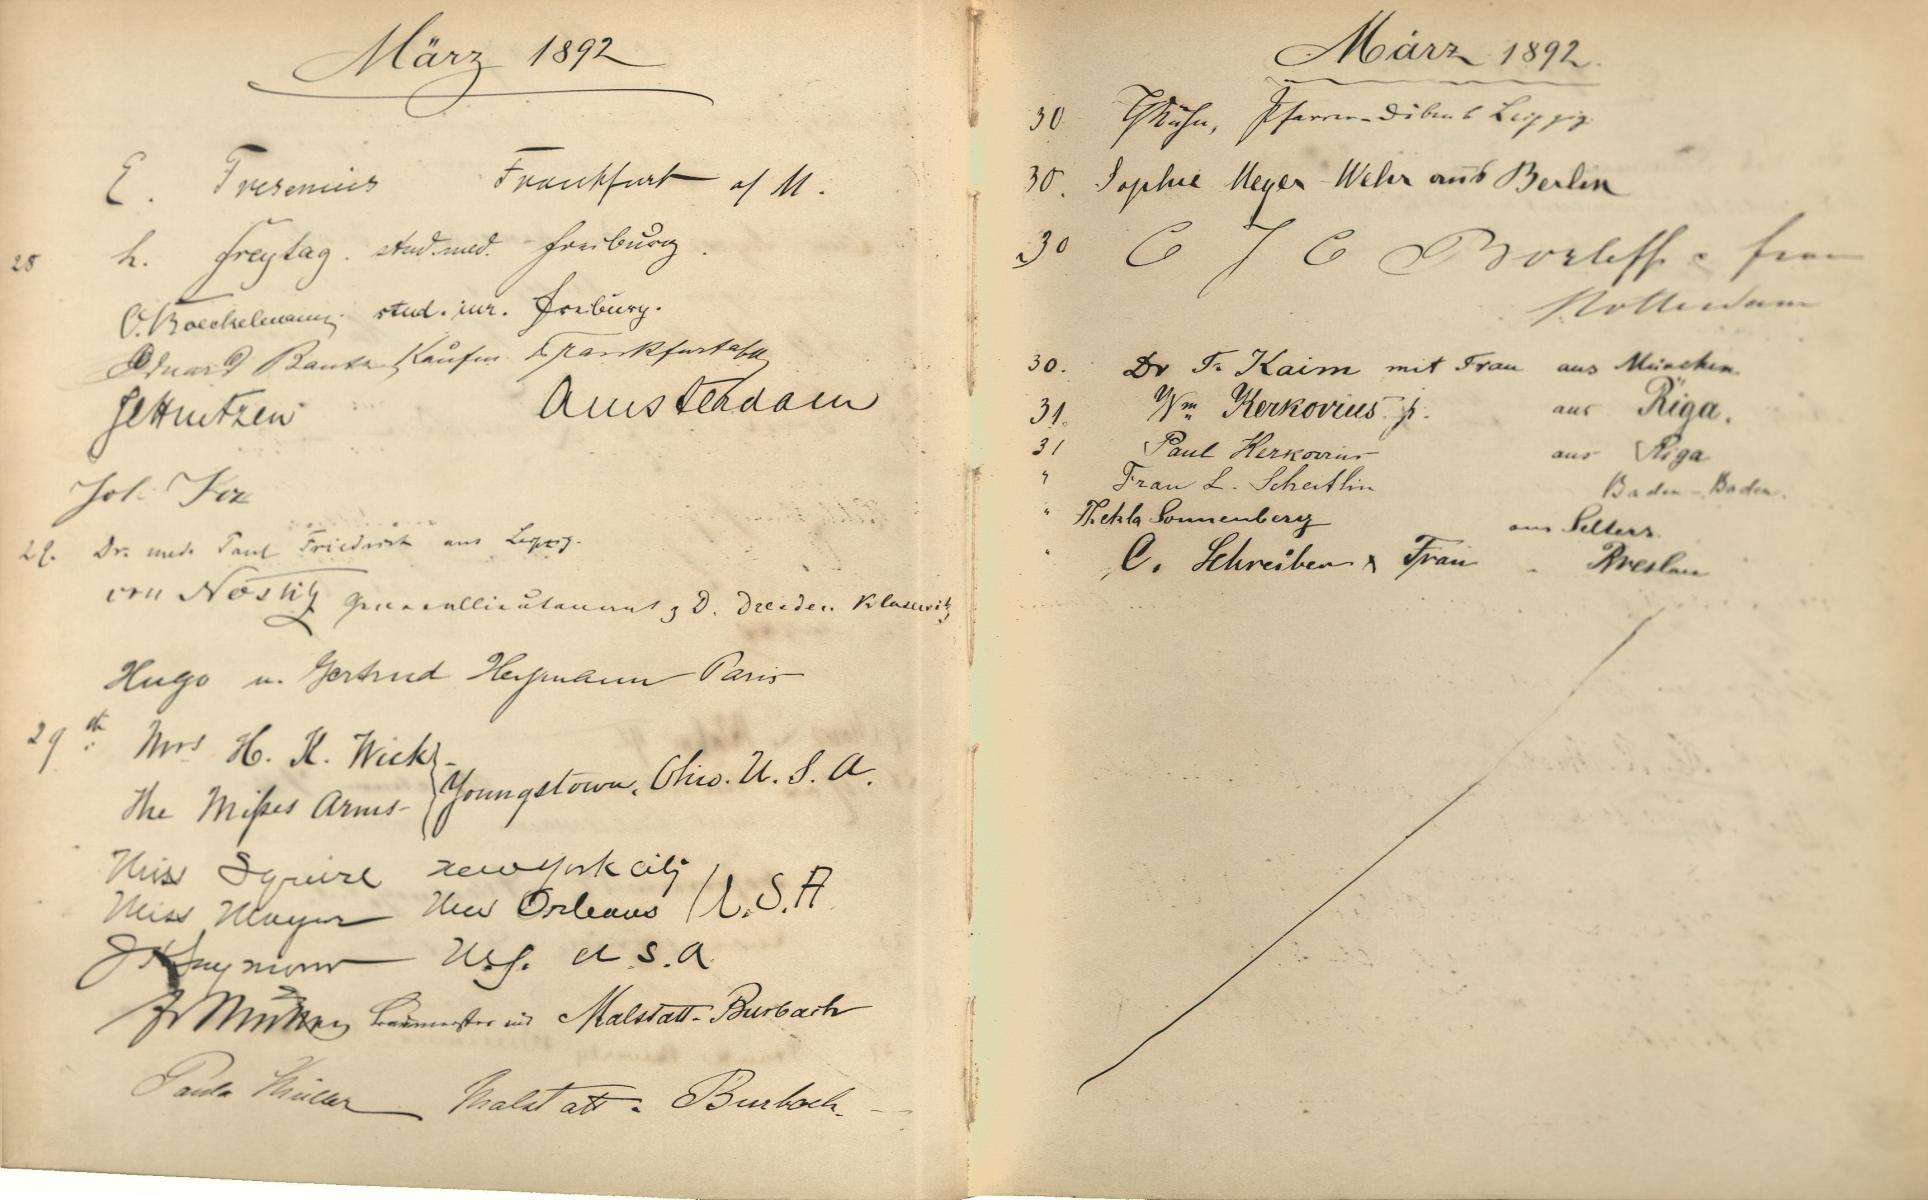 März 1892
E. Fresenius Frankfurt a/ M.
28 h. Freytag. stud. med. Freiburg.
O. Boeckelmann, stud. jur. Freiburg.
Eduard Kaufm Frankfurt a/M
Amsterdam
Joh. Fox
29. Dr. med. Paul Friedrich aus Leipzig.
von Nostitz Generallieutenant z D. Dresden Blasewitz
Hugo u. Gertrud Heymann Paris
29th Mrs H. K. Wick
The Misses Arms
Youngstown, Ohio. U. S. A.
Miss Squire New York City
Miss Mayer New Orleans U.S.A
U. S. A
Baumeister aus Malstatt-Burbach
Paula Müller Malstatt-Burbach
März 1892.
30 Pfarrer Leipzig
30. Sophie Meyer-Wehr aus Berlin
30 C J C & frau
Rotterdam
30. Dr Fr Kaim mit Frau aus München.
31. Wm Kerkovius jr. aus Riga.
31 Paul Kerkovius aus Riga
" Frau L. Scheitlin Baden-Baden.
" Thekla Sonnenberg aus Selters.
" C. Schreiber & Frau " Breslau